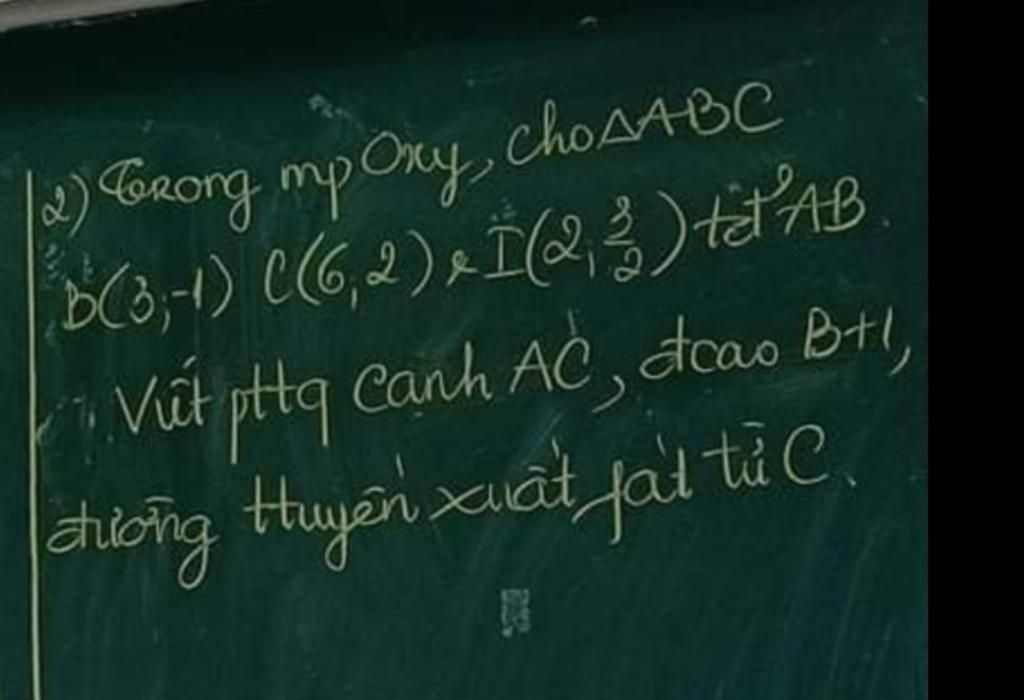 2) Trong mp Oxy, cho △ABC
B(3;-1) C(6,2) & I(2,3/2) tđ AB.
Viết pttq cạnh AC, đcao BH,
đường ttuyến xuất fát từ C.